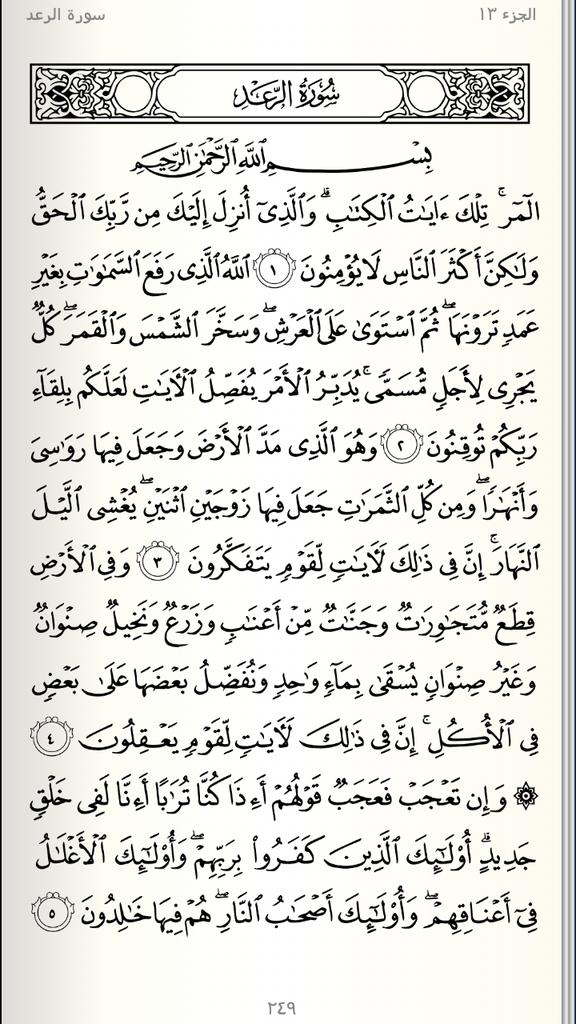 الجزء ١٣
سورة الرعد
سُورَةُ الرَّعۡدِ
بِسۡمِ ٱللَّهِ ٱلرَّحۡمَٰنِ ٱلرَّحِيمِ
الٓمٓرۚ تِلۡكَ ءَايَٰتُ ٱلۡكِتَٰبِۗ وَٱلَّذِيٓ أُنزِلَ إِلَيۡكَ مِن رَّبِّكَ ٱلۡحَقُّ
وَلَٰكِنَّ أَكۡثَرَ ٱلنَّاسِ لَا يُؤۡمِنُونَ ١ ٱللَّهُ ٱلَّذِي رَفَعَ ٱلسَّمَٰوَٰتِ بِغَيۡرِ
عَمَدٖ تَرَوۡنَهَاۖ ثُمَّ ٱسۡتَوَىٰ عَلَى ٱلۡعَرۡشِۖ وَسَخَّرَ ٱلشَّمۡسَ وَٱلۡقَمَرَۖ كُلّٞ
يَجۡرِي لِأَجَلٖ مُّسَمّٗىۚ يُدَبِّرُ ٱلۡأَمۡرَ يُفَصِّلُ ٱلۡأٓيَٰتِ لَعَلَّكُم بِلِقَآءِ
رَبِّكُمۡ تُوقِنُونَ ٢ وَهُوَ ٱلَّذِي مَدَّ ٱلۡأَرۡضَ وَجَعَلَ فِيهَا رَوَٰسِيَ
وَأَنۡهَٰرٗاۖ وَمِن كُلِّ ٱلثَّمَرَٰتِ جَعَلَ فِيهَا زَوۡجَيۡنِ ٱثۡنَيۡنِۖ يُغۡشِي ٱلَّيۡلَ
ٱلنَّهَارَۚ إِنَّ فِي ذَٰلِكَ لَأٓيَٰتٖ لِّقَوۡمٖ يَتَفَكَّرُونَ ٣ وَفِي ٱلۡأَرۡضِ
قِطَعٞ مُّتَجَٰوِرَٰتٞ وَجَنَّٰتٞ مِّنۡ أَعۡنَٰبٖ وَزَرۡعٞ وَنَخِيلٞ صِنۡوَانٞ
وَغَيۡرُ صِنۡوَانٖ يُسۡقَىٰ بِمَآءٖ وَٰحِدٖ وَنُفَضِّلُ بَعۡضَهَا عَلَىٰ بَعۡضٖ
فِي ٱلۡأُكُلِۚ إِنَّ فِي ذَٰلِكَ لَأٓيَٰتٖ لِّقَوۡمٖ يَعۡقِلُونَ ٤
۞ وَإِن تَعۡجَبۡ فَعَجَبٞ قَوۡلُهُمۡ أَءِذَا كُنَّا تُرَٰبًا أَءِنَّا لَفِي خَلۡقٖ
جَدِيدٍۗ أُوْلَٰٓئِكَ ٱلَّذِينَ كَفَرُواْ بِرَبِّهِمۡۖ وَأُوْلَٰٓئِكَ ٱلۡأَغۡلَٰلُ
فِيٓ أَعۡنَاقِهِمۡۖ وَأُوْلَٰٓئِكَ أَصۡحَٰبُ ٱلنَّارِۖ هُمۡ فِيهَا خَٰلِدُونَ ٥
٢٤٩